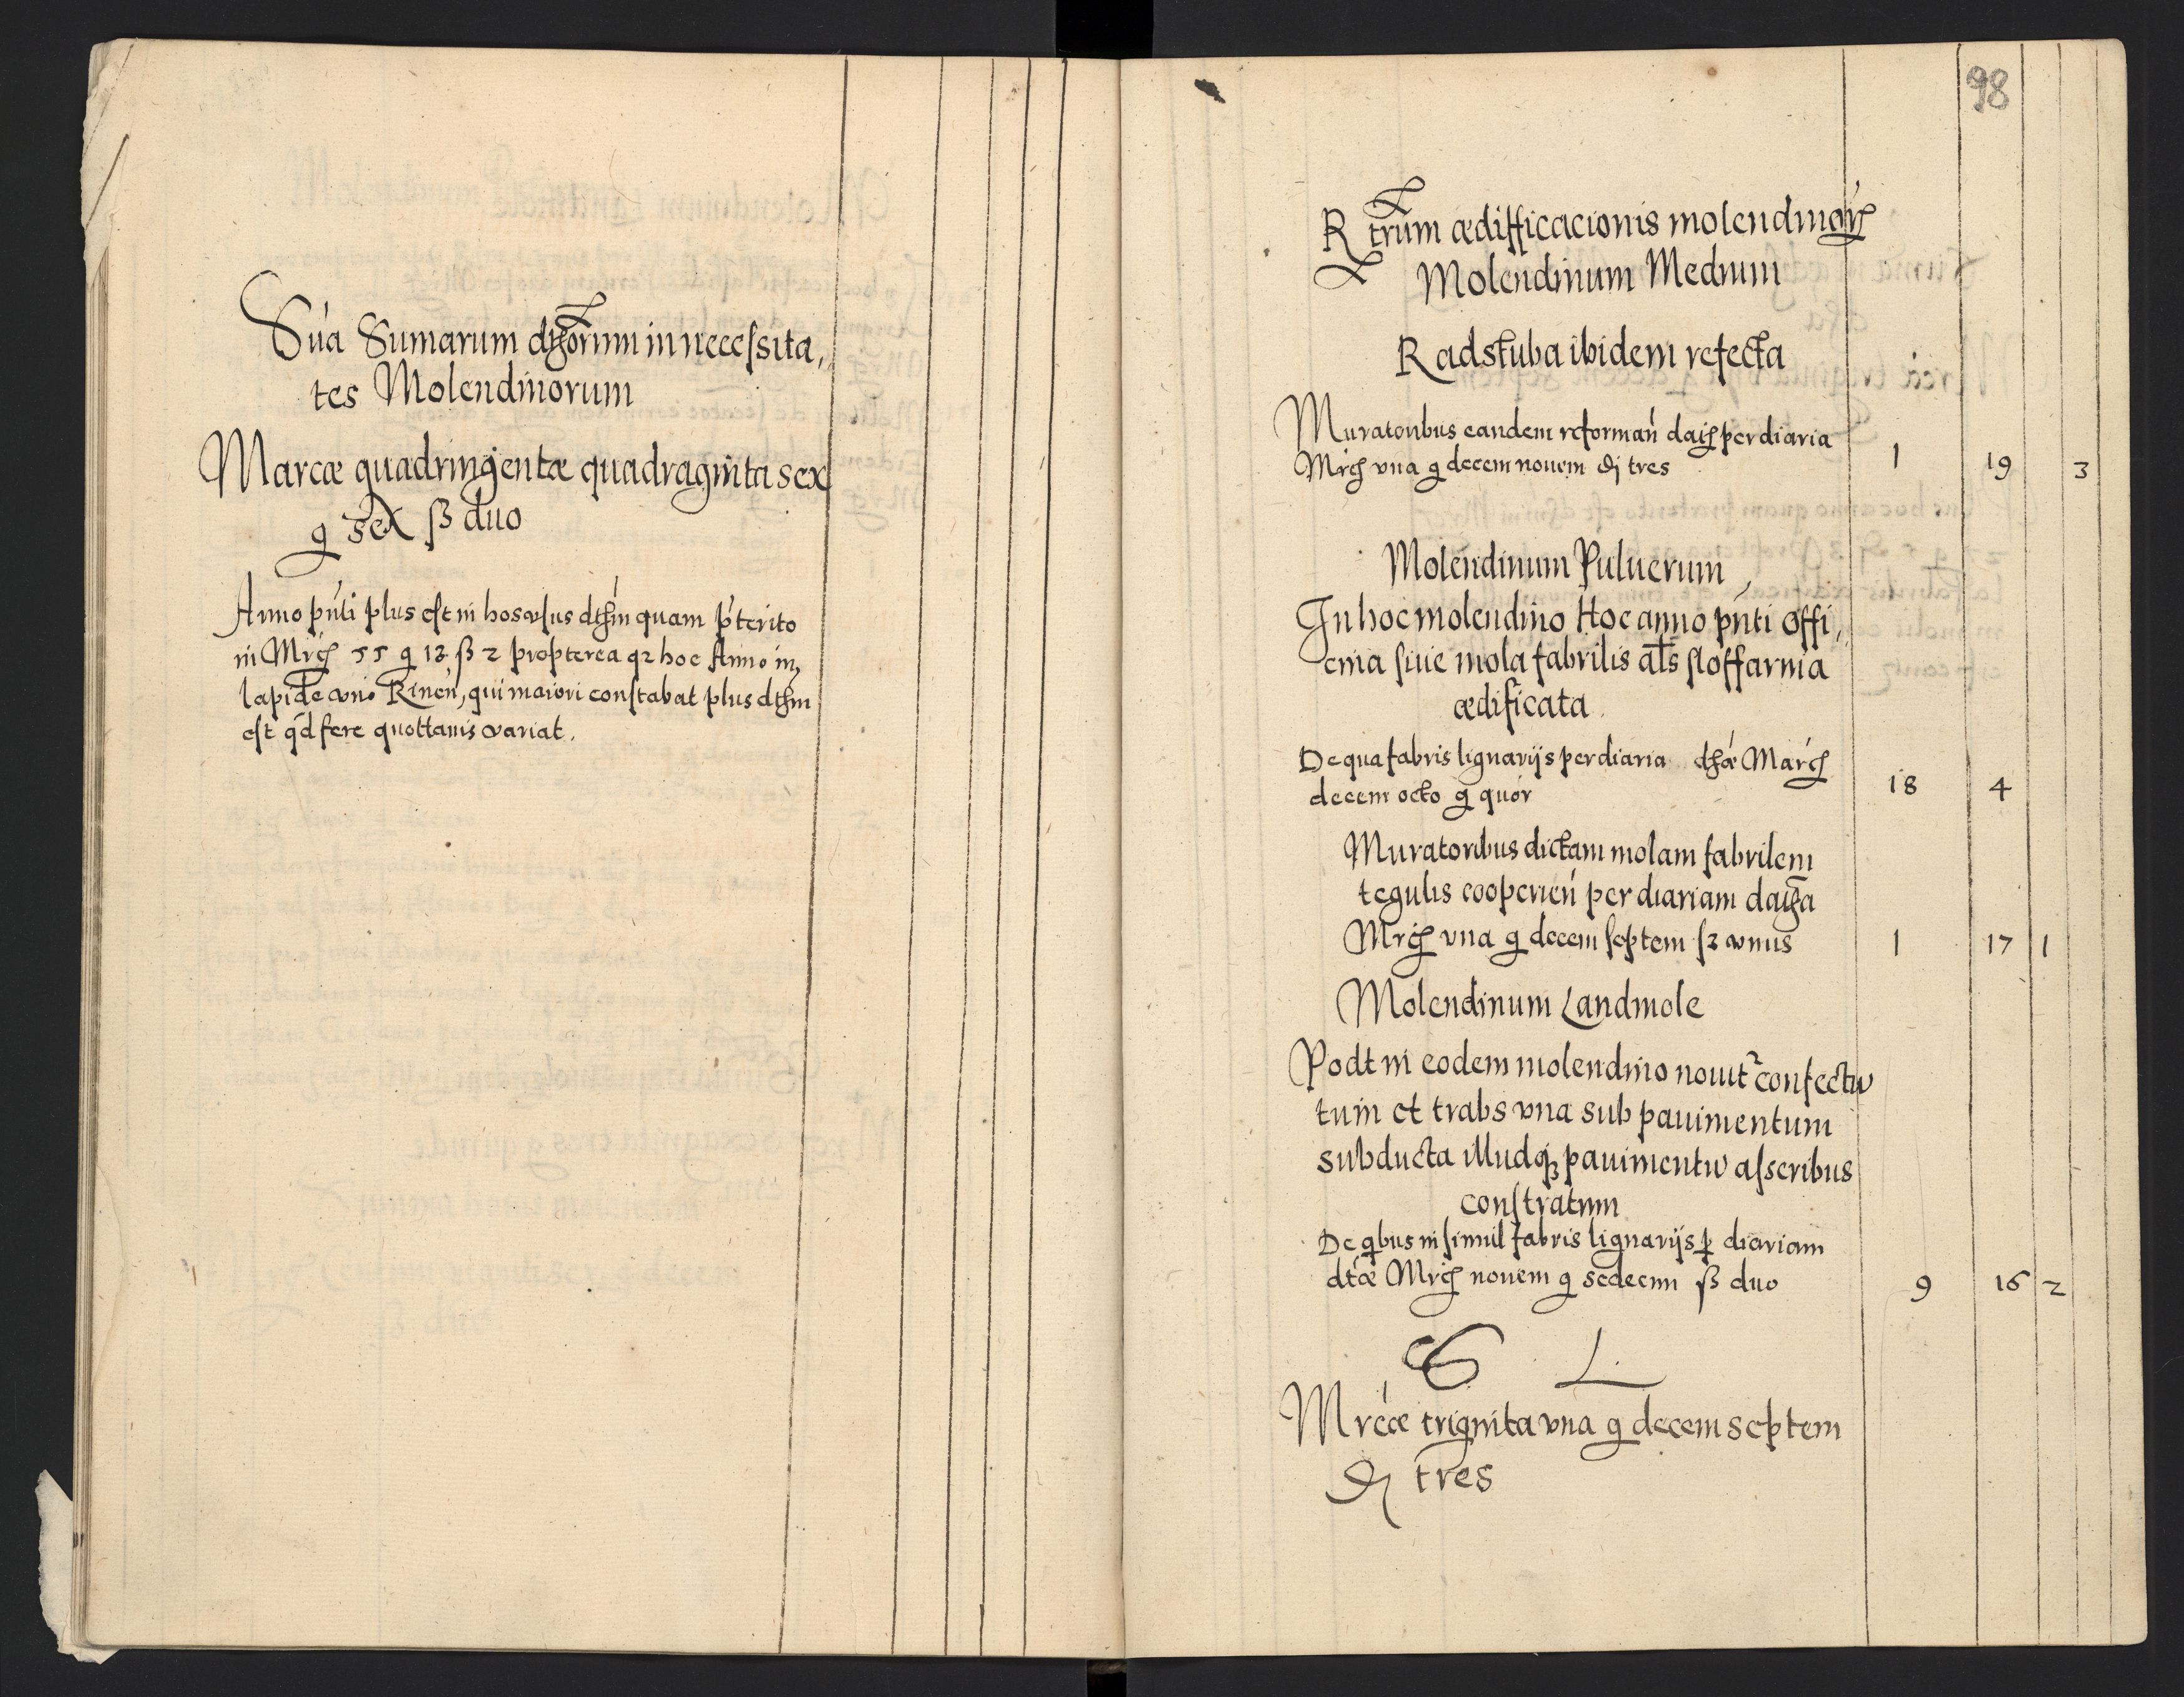 Sūa Sumarum dthorum in necessita,
tes Molendinorum
Marcæ quadringentæ quadraginta sex
g sex ß duo
Anno pn̄ti plus est in hos vsus dthm quam pʼterito
in Mrch 55 g 13 ß 2 propterea qz hoc Anno in,
lapide vno Rinen̄, qui maiori constabat plus dthm
est qd fere quottanis variat.
98
R trum ædifficacionis molendinor
Molendinum Medium
Radstuba ibidem refecta
Muratoribus eandem reforman̄ dat per diaria
Mrch vna g decem nouem ₰ tres 1 19 3
Molendinum Puluerum
In hoc molendino Hoc anno pn̄ti offi,
cina siue mola fabrilis als sloffarnia
ædificata
De qua fabris lignarijs per diaria dthæ March
decem octo g quor 18 4
Muratoribus dictam molam fabrilem
tegulis cooperien̄ per diariam data
Mrch vna g decem septem sz vnus 1 17 1
Molendinum Landmole
Podt in eodem molendino nouit confectu
tum et trabs vna sub pauimentum
subducta illudqʒ pauimentu asseribus
constratum
De qbus insimul fabris lignarijs p diariam
dtæ Mrch nouem g sedecim ß duo 9 16 2
S L
Mrcæ triginta vna g decem septem
₰ tres